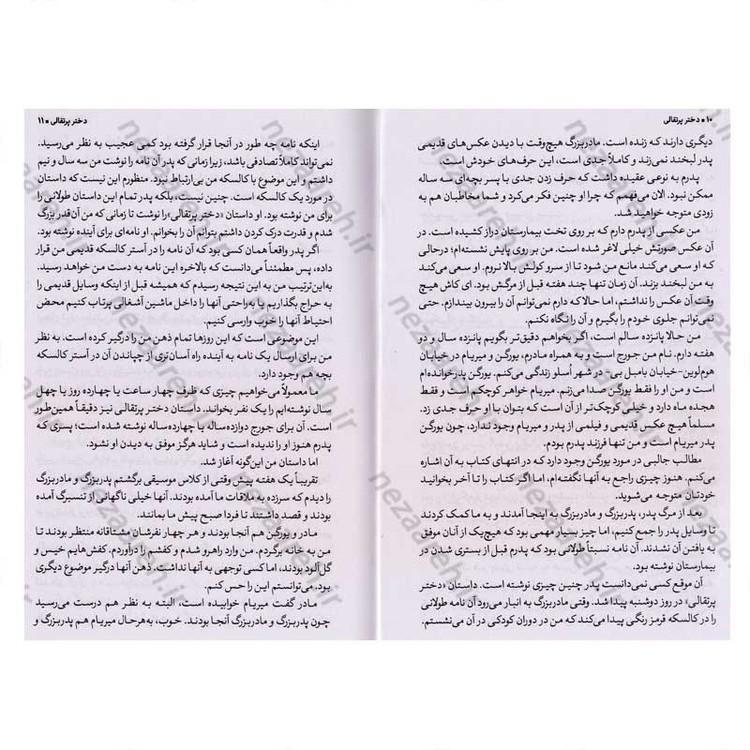 ۱۰ ● دختر پرتقالی
دیگری دارند که زنده است. مادربزرگ هیچ‌وقت با دیدن عکس‌های قدیمی
پدر لبخند نمی‌زند و کاملاً جدی است، این حرف‌های خودش است.
پدرم به نوعی عقیده داشت که حرف زدن جدی با پسر بچه‌ای سه ساله
ممکن نبود. الان می‌فهمم که چرا او چنین فکر می‌کرد و شما مخاطبان هم به
زودی متوجه خواهید شد.
من عکسی از پدرم دارم که بر روی تخت بیمارستان دراز کشیده است. در
آن عکس صورتش خیلی لاغر شده است. من بر روی پایش نشسته‌ام؛ درحالی
که او سعی می‌کند مانع من شود تا از سر و کولش بالا نروم. او سعی می‌کند
به من لبخند بزند. آن زمان تنها چند هفته قبل از مرگش بود. ای کاش هیچ
وقت آن عکس را نداشتم، اما حالا که دارم نمی‌توانم آن را بیرون بیندازم. حتی
نمی‌توانم جلوی خودم را بگیرم و آن را نگاه نکنم.
من حالا پانزده سالم است، اگر بخواهم دقیق‌تر بگویم پانزده سال و دو
هفته دارم. نام من جورج است و به همراه مادرم، یورگن و میریام در خیابان
هوم‌لوین-خیابان بامل بی- در شهر اُسلو زندگی می‌کنم. یورگن پدرخوانده‌ام
است و من او را فقط یورگن صدا می‌زنم. میریام خواهر کوچکم است و فقط
هجده ماه دارد و خیلی کوچک‌تر از آن است که بتوان با او حرف جدی زد.
مسلماً هیچ عکس قدیمی و فیلمی از پدرم و میریام وجود ندارد، چون یورگن
پدر میریام است و من تنها فرزند پدرم بودم.
مطالب جالبی در مورد یورگن وجود دارد که در انتهای کتاب به آن اشاره
می‌کنم. هنوز چیزی راجع به آنها نگفته‌ام، اما اگر کتاب را تا آخر بخوانید
خودتان متوجه می‌شوید.
بعد از مرگ پدر، پدربزرگ و مادربزرگ به اینجا آمدند و به ما کمک کردند
تا وسایل پدر را جمع کنیم، اما چیز بسیار مهمی بود که هیچ‌یک از آنان موفق
به یافتن آن نشدند. آن نامه نسبتاً طولانی بود که پدرم قبل از بستری شدن در
بیمارستان نوشته بود.
آن موقع کسی نمی‌دانست پدر چنین چیزی نوشته است. داستان «دختر
پرتقالی» در روز دوشنبه پیدا شد. وقتی مادربزرگ به انبار می‌رود آن نامه طولانی
را در کالسکه قرمز رنگی پیدا می‌کند که من در دوران کودکی در آن می‌نشستم.
دختر پرتقالی ● ۱۱
اینکه نامه چه طور در آنجا قرار گرفته بود کمی عجیب به نظر می‌رسید.
نمی‌تواند کاملاً تصادفی باشد، زیرا زمانی که پدر آن نامه را نوشت من سه سال و نیم
داشتم و این موضوع با کالسکه من بی‌ارتباط نبود. منظورم این نیست که داستان
در مورد یک کالسکه است. چنین نیست، بلکه پدر تمام این داستان طولانی را
برای من نوشته بود. او داستان «دختر پرتقالی» را نوشت تا زمانی که من آن‌قدر بزرگ
شدم و قدرت درک کردن داشتم بتوانم آن را بخوانم. او نامه‌ای برای آینده نوشته بود.
اگر پدر واقعاً همان کسی بود که آن نامه را در آستر کالسکه قدیمی من قرار
داده، پس مطمئناً می‌دانست که بالاخره این نامه به دست من خواهد رسید.
به‌این‌ترتیب من به این نتیجه رسیدم که همیشه قبل از اینکه وسایل قدیمی را
به حراج بگذاریم یا به‌راحتی آنها را داخل ماشین آشغالی پرتاب کنیم محض
احتیاط آنها را خوب وارسی کنیم.
این موضوعی است که این روزها تمام ذهن من را درگیر کرده است. به نظر
من برای ارسال یک نامه به آینده راه آسان‌تری از چپاندن آن در آستر کالسکه
بچه هم وجود دارد.
ما معمولاً می‌خواهیم چیزی که ظرف چهار ساعت یا چهارده روز یا چهل
سال نوشته‌ایم را یک نفر بخواند. داستان دختر پرتقالی نیز دقیقاً همین‌طور
است. آن برای جورج دوازده‌ساله یا چهارده‌ساله نوشته شده است؛ پسری که
پدرم هنوز او را ندیده است و شاید هرگز موفق به دیدن او نشود.
اما داستان من این‌گونه آغاز شد.
تقریباً یک هفته پیش وقتی از کلاس موسیقی برگشتم پدربزرگ و مادربزرگ
را دیدم که سرزده به ملاقات ما آمده بودند. آنها خیلی ناگهانی از تنسبرگ آمده
بودند و قصد داشتند تا فردا صبح پیش ما بمانند.
مادر و یورگن هم آنجا بودند و هر چهار نفرشان مشتاقانه منتظر بودند تا
من به خانه برگردم. من وارد راهرو شدم و کفشم را درآوردم. کفش‌هایم خیس و
گل‌آلود بودند، اما کسی توجهی به آنها نداشت. ذهن آنها درگیر موضوع دیگری
بود. می‌توانستم این را حس کنم.
مادر گفت میریام خوابیده است، البته به نظر هم درست می‌رسید
چون پدربزرگ و مادربزرگ آنجا بودند. خوب، به‌هرحال میریام هم پدربزرگ و
nezaareh.ir